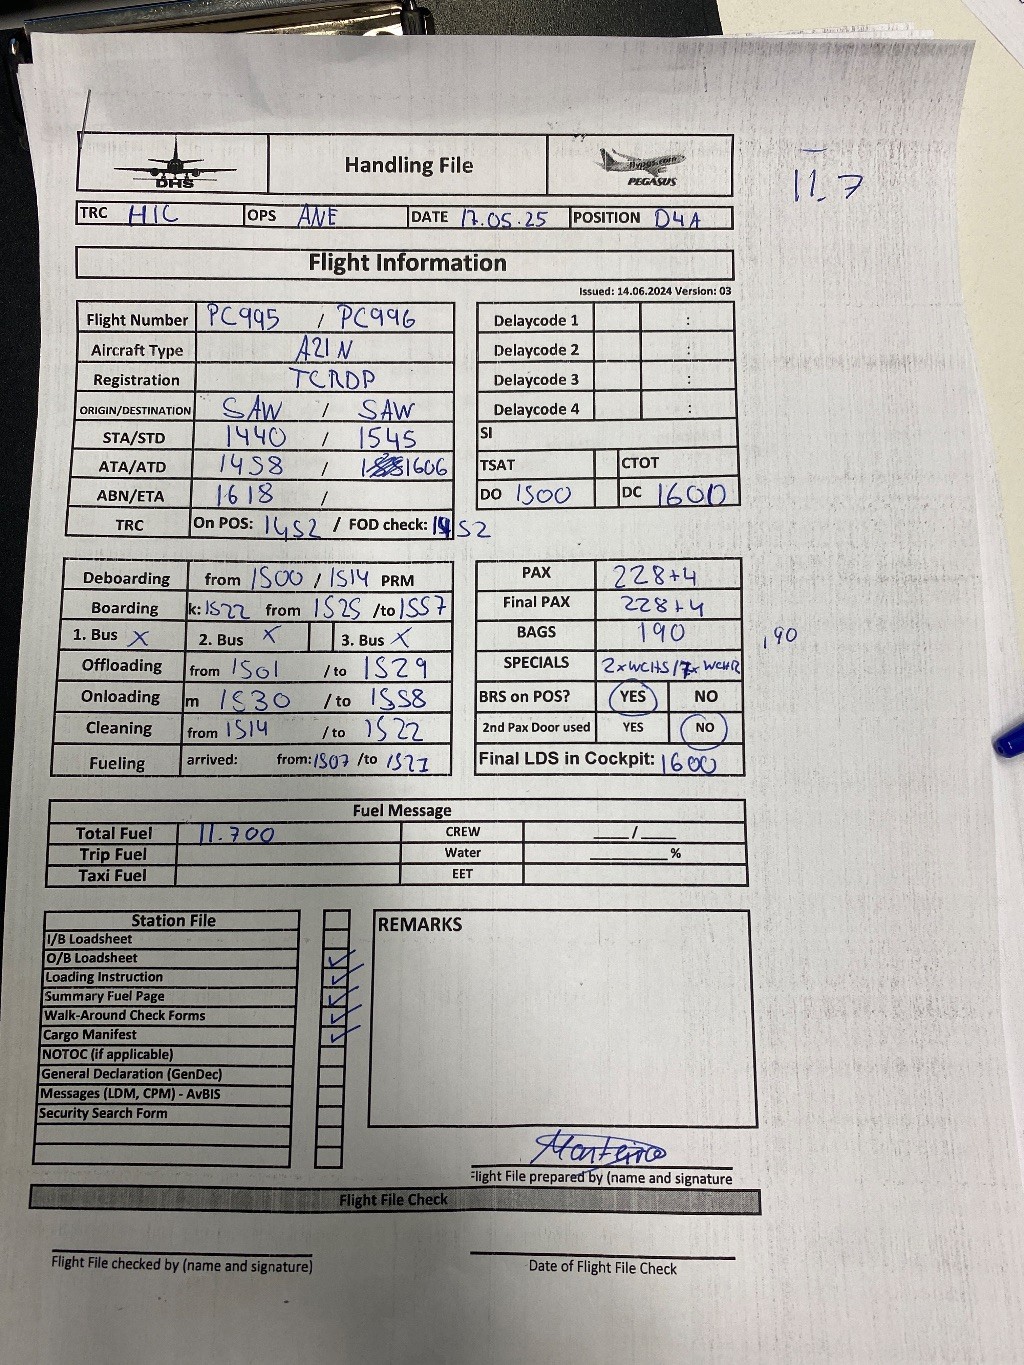 DHS
Handling File
flypgs.com
PEGASUS
11.7
TRC HIC OPS ANE DATE 17.05.25 POSITION D4A
Flight Information
Issued: 14.06.2024 Version: 03
Flight Number PC995 / PC996
Aircraft Type A21N
Registration TCRDP
ORIGIN/DESTINATION SAW / SAW
STA/STD 1440 / 1545
ATA/ATD 1458 / 1606
ABN/ETA 1618 /
TRC On POS: 1452 / FOD check: 1452
Delaycode 1 :
Delaycode 2 :
Delaycode 3 :
Delaycode 4 :
SI
TSAT CTOT
DO 1500 DC 1600
Deboarding from 1500 / 1514 PRM
Boarding k: 1522 from 1525 /to 1557
1. Bus X 2. Bus X 3. Bus X
Offloading from 1501 /to 1529
Onloading m 1530 /to 1558
Cleaning from 1514 /to 1522
Fueling arrived: from: 1507 /to 1521
PAX 228+4
Final PAX 228+4
BAGS 190
,90
SPECIALS 2xWCHS/7xWCHR
BRS on POS? YES NO
2nd Pax Door used YES NO
Final LDS in Cockpit: 1600
Fuel Message
Total Fuel 11.700 CREW ____/____
Trip Fuel Water ________%
Taxi Fuel EET
Station File
I/B Loadsheet
O/B Loadsheet ✓
Loading Instruction ✓
Summary Fuel Page ✓
Walk-Around Check Forms ✓
Cargo Manifest ✓
NOTOC (if applicable)
General Declaration (GenDec)
Messages (LDM, CPM) - AvBIS
Security Search Form
REMARKS
Monteiro
Flight File prepared by (name and signature
Flight File Check
Flight File checked by (name and signature)
Date of Flight File Check